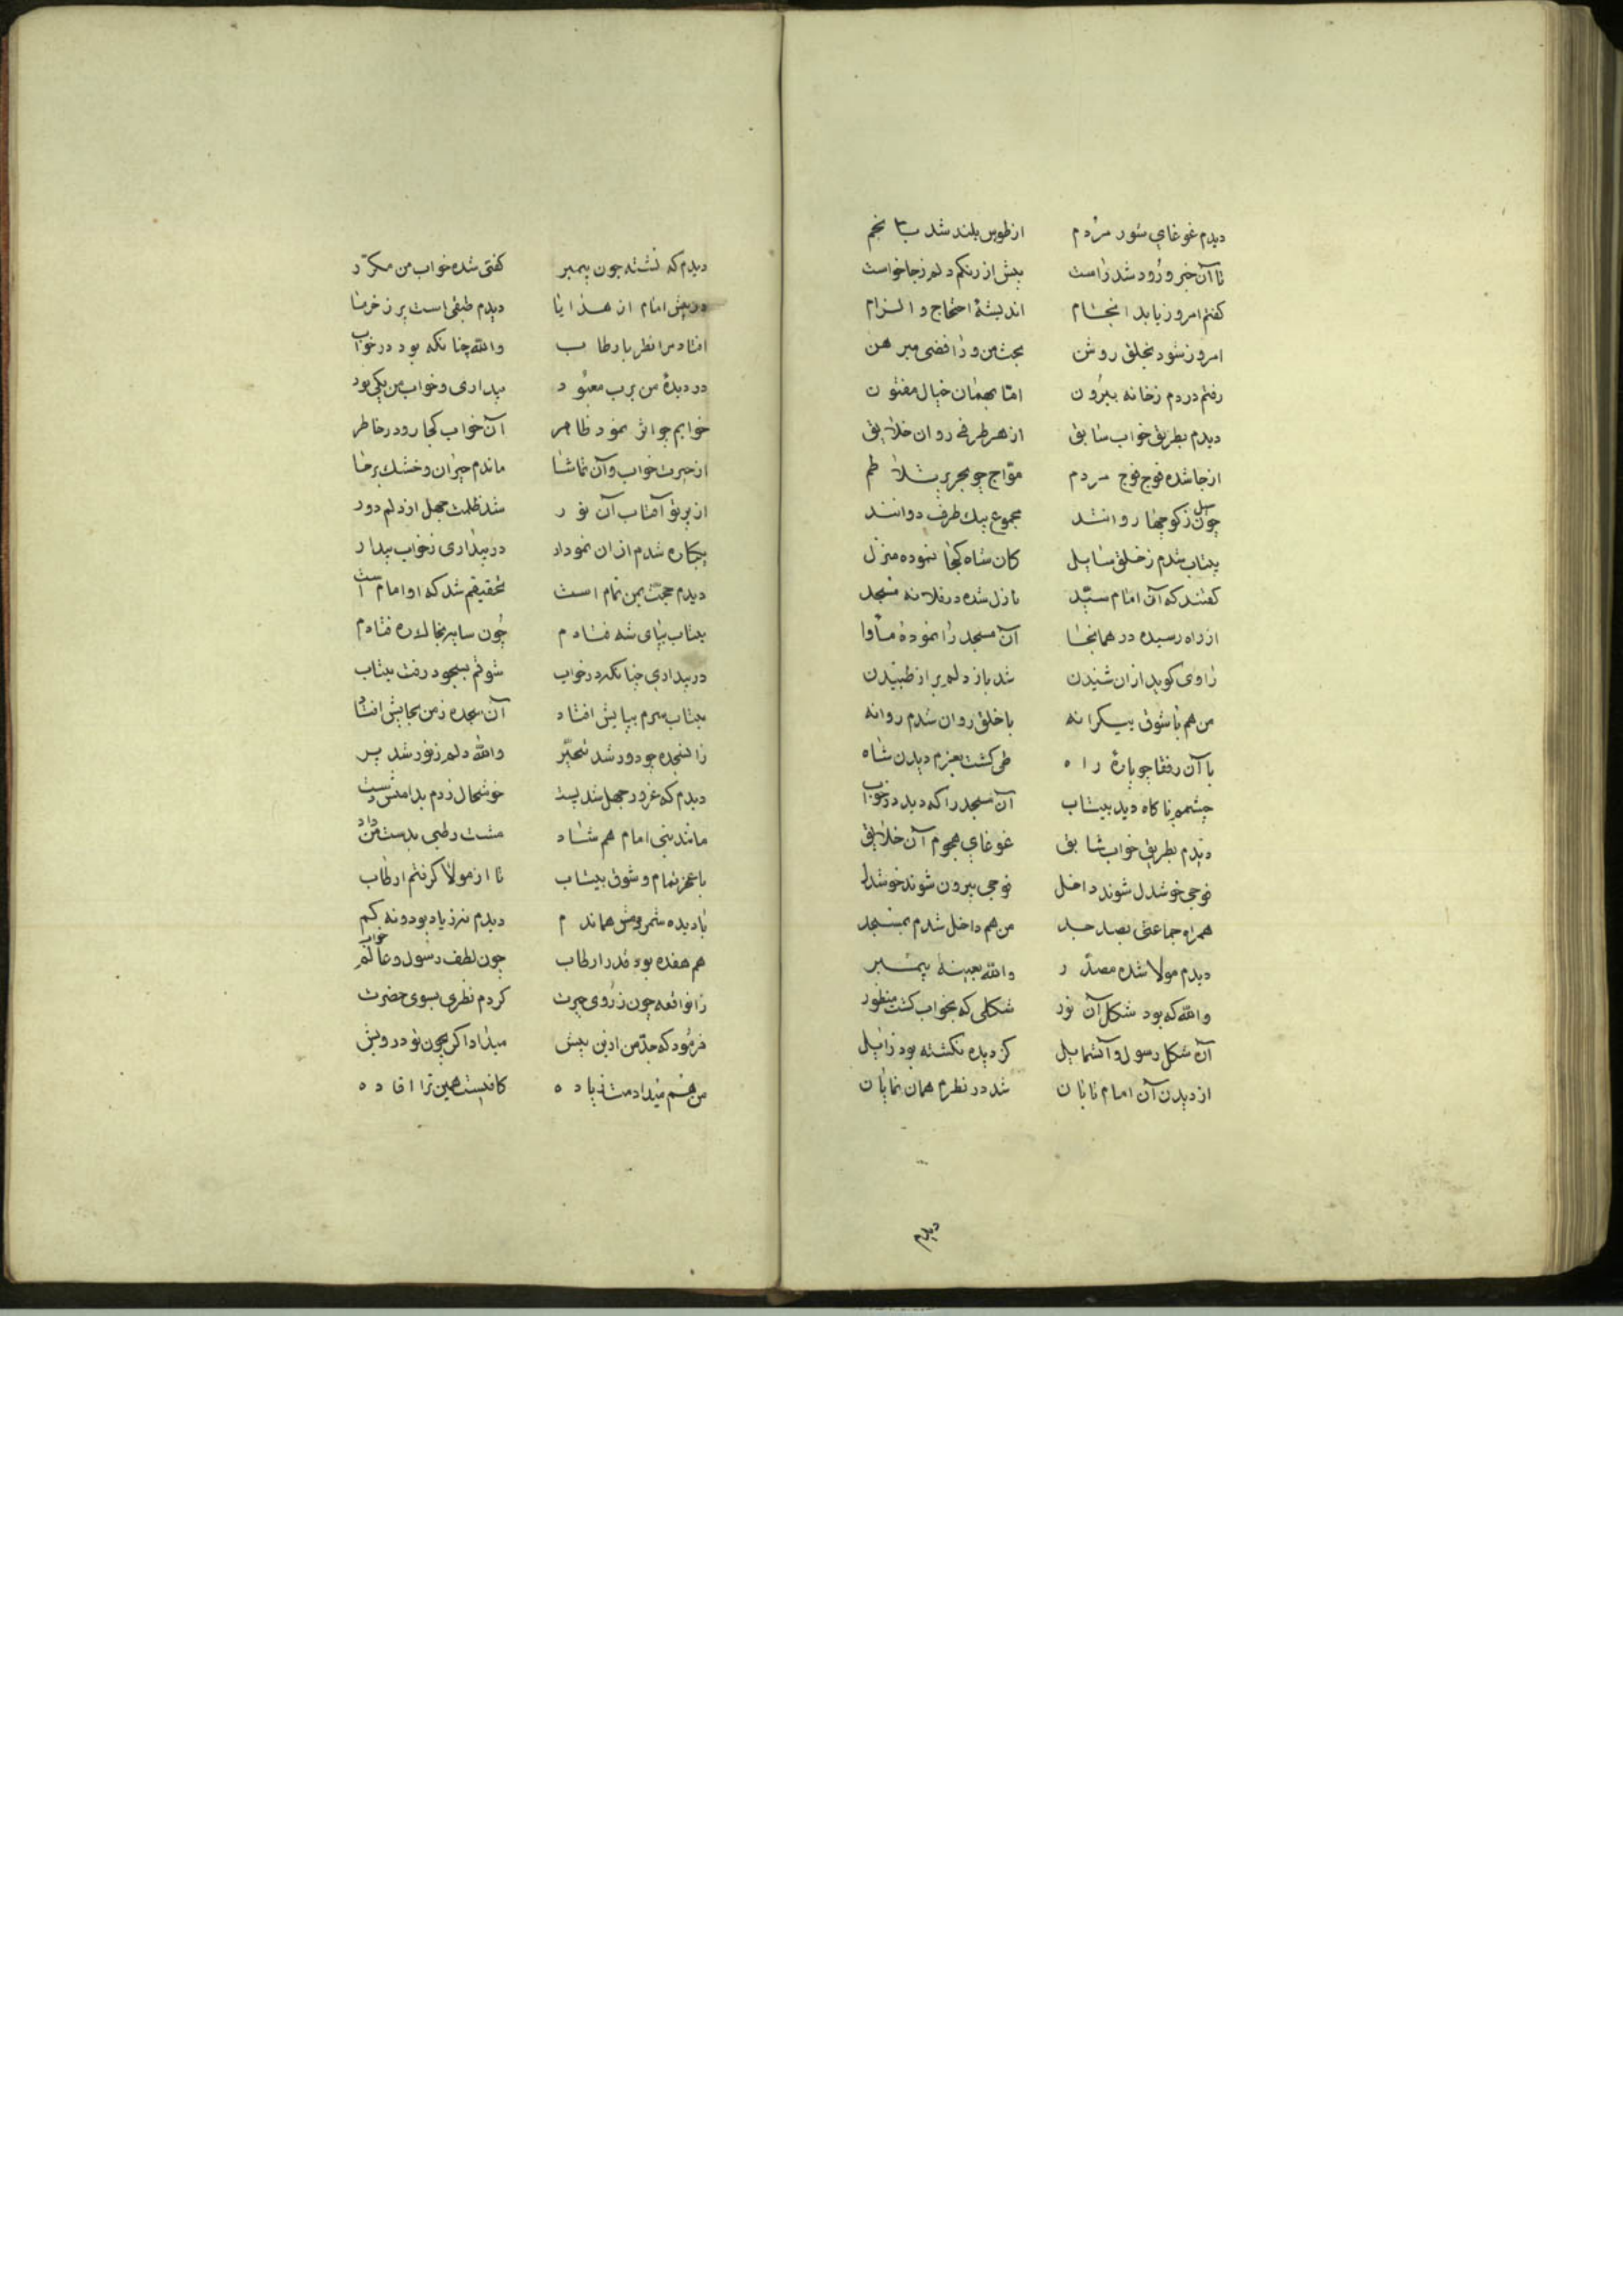 دیدم غوغای شور مردم از طوس بلند شد بانجم
تا آن خبر ورود شد راست پیش از رنکم دلم زجا خواست
کفتم امروز یابد انجام اندیشهٔ احتجاج و الزام
امروز شود بخلق روشن بحث من و رافضی مبرهن
رفتم دردم زخانه بیرون اما بهمان خیال مفتون
دیدم بطریق خواب سابق از هر طرفی روان خلایق
از جا شده فوج فوج مردم مواج چو بحر پر تلاطم
چون سیل زکوچها روانند مجموع بیک طرف دوانند
بیتاب شدم زخلق سایل کان شاه کجا نموده منزل
کفتند که آن امام سید نازل شده در فلانه مسجد
از راه رسیده در همانجا آن مسجد را نموده ماوا
راوی کوید از آن شنیدن شد باز دلم پر از طپیدن
من هم با شوق بیکرانه با خلق روان شدم روانه
با آن رفقا چو پارهٔ راه طی کشت بعزم دیدن شاه
چشمم ناکاه دید بیتاب آن مسجد را که دید در خواب
دیدم بطریق خواب سابق غوغای هجوم آن خلایق
فوجی خوشدل شوند داخل فوجی بیرون شوند خوشدل
همراه جماعتی بصد جد من هم داخل شدم بمسجد
دیدم مولا شده مصدر والله بعینه پیمبر
والله که بود شکل آن نور شکلی که بخواب کشت منظور
آن شکل رسول و آن شمایل کز دیده نکشته بود زایل
از دیدن آن امام تابان شد در نظرم همان نمایان
دیدم
دیدم که نشسته چون پیمبر کفتی شده خواب من مکرر
در پیش امام از هدایا دیدم طبقی است پر ز خرما
افتاد مرا نظر بارطاب والله چنانکه بود در خواب
در دیدهٔ من برب معبود بیداری و خواب من یکی بود
خوابم چو اثر نمود ظاهر آن خواب کجا رود ز خاطر
از حیرت خواب و آن تماشا ماندم حیران و خشک بر جا
از پرتو آفتاب آن نور شد ظلمت جهل از دلم دور
یکباره شدم از آن نمودار در بیداری ز خواب بیدار
دیدم حجت بمن تمام است تحقیقم شد که او امام است
بیتاب بپای شه فتادم چون سایه بخاک ره فتادم
در بیداری چنانکه در خواب شوقم بسجود رفت بیتاب
بیتاب سرم بپایش افتاد آن سجده ز من بجایش افتاد
زان سجده چو دور شد تحیر والله دلم ز نور شد پر
دیدم که غرور جهل شد پست خوشحال زدم بدامنش دست
مانند نبی امام هم شاد مشت رطبی بدست من داد
با عجز تمام و شوق بیتاب تا از مولا کرفتم ارطاب
با دیده شمردمش هماندم دیدم نه زیاد بود و نه کم
هم هفده بود قدر ارطاب چون لطف رسول و عالم خواب
زان واقعه چون ز روی حیرت کردم نظری بسوی حضرت
فرمود که جد من ازین بیش میداد اکر بچون تو درویش
من هم میدادمت زیاده کافیست همین ترا افاده